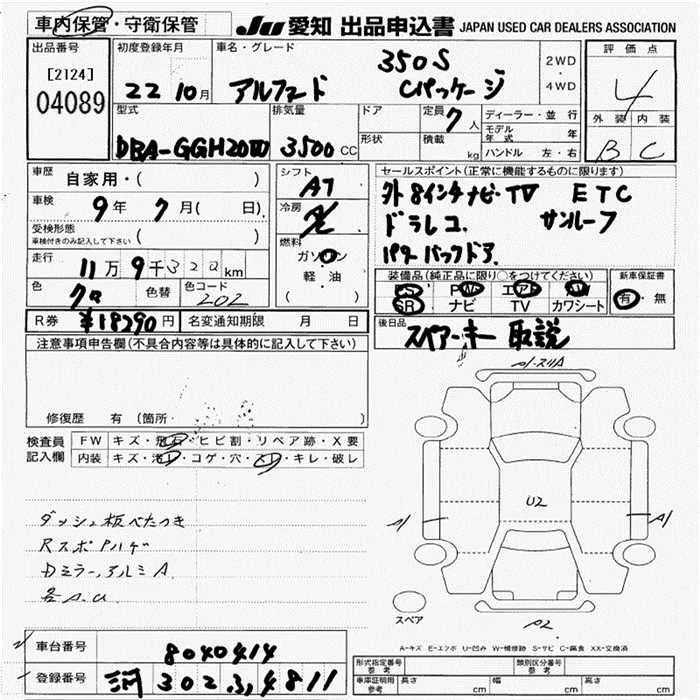 車内保管・守衛保管 JU 愛知 出品申込書 JAPAN USED CAR DEALERS ASSOCIATION
出品番号 初度登録年月 車名・グレード 評価点
[2124] 350S 2WD
04089 22 10月 アルファード Cパッケージ 4WD 4
型式 排気量 ドア 定員 7人 ディーラー・並行 外装 内装
DBA-GGH20W 3500CC 形状 積載 kg モデル年式 年 B C
ハンドル 左・右
車歴 自家用・( ) シフト AT セールスポイント(正常に機能するものに限ります)
車検 9年 7月( 日) 冷房 外 8インチナビ・TV ETC
受検形態 ( ) ドラレコ サンルーフ
車検付きのみ記入して下さい 燃料 パワーバックドア
走行 11万9千322km ガソリン 装備品(純正品に限り○をつけてください) 新車保証書
軽・油 PS PW エアB AW 有・無
色 クロ 色替 色コード 202 ( ) SR ナビ TV カワシート
R券 ¥18290円 名変通知期限 月 日 後日品
スペアーキー 取説
注意事項申告欄(不具合内容等は具体的に記入して下さい)
修復歴 有 (箇所
検査員 FW キズ・飛石・ヒビ割・リペア跡・X要
記入欄 内装 キズ・汚レ・コゲ・穴・スレ・キレ・破レ
U2
A1
ダッシュ板べたつき
RスポPハゲ
Dミラー,アルミA
各A.U
スペア
A2
A-キズ E-エクボ U-凹み W-補修跡 S-サビ C-腐食 XX-交換済
車台番号 8040414
登録番号 302 34811
形式指定番号 参考 類別区分番号 参考
車庫証明用 参考 長さ cm 幅 cm 高さ cm